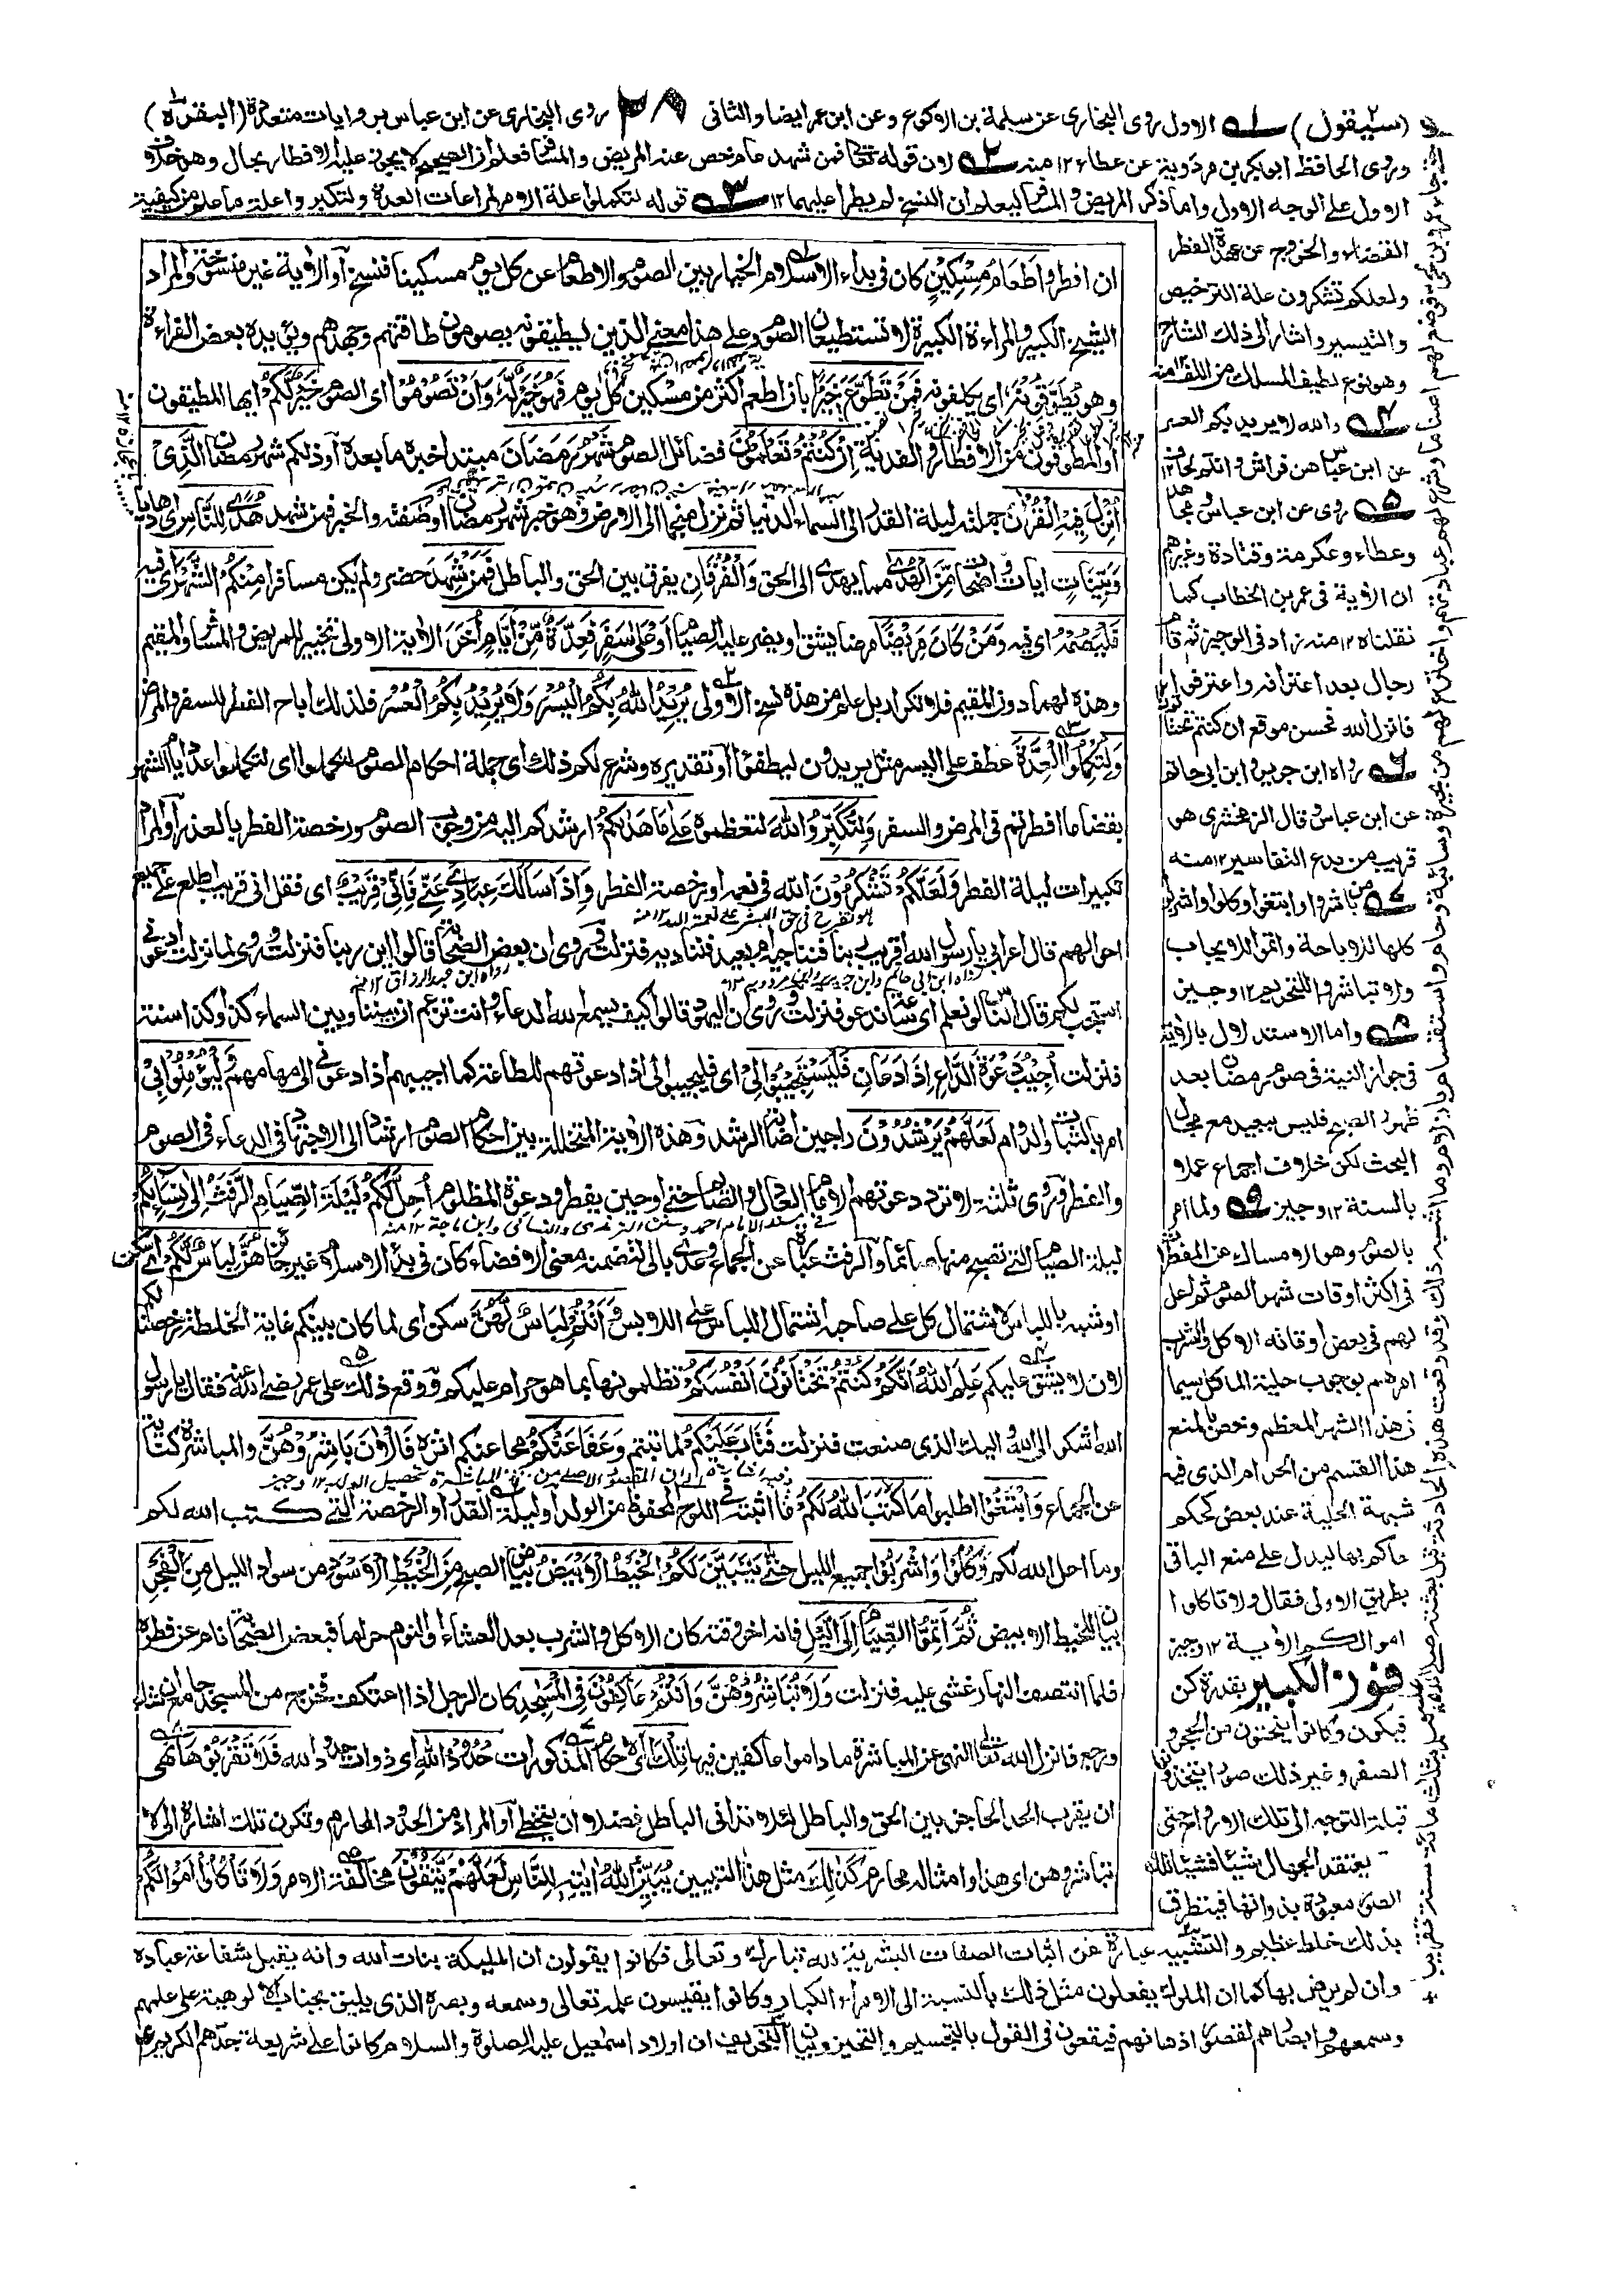 (سيقول) الاول روى البخارى عن سلمة بن الاكوع وعن ابن عمر ايضا والثانى ٢٨ روى البخارى عن ابن عباس بروايات متعددة (البقرة)
وروى الحافظ ابو بكر بن مردوية عن عطاء ١٢ منه قوله تعالى فمن شهد رخص عنه المريض والمسافر فعلم ان الصحيح لا يجوز عليه الافطار بحال وهو خلاف
الاول على الوجه الاول واما ذكر المريض والمسافر ليعلم ان النسخ لم يطرأ عليهما ١٢ قوله لتكملوا علة الامر لمراعات العدة ولتكبروا علة ما علم من كيفية
القضاء والخروج عن عهدة الفطر
ولعلكم تشكرون علة الترخيص
والتيسير واشار الى ذلك الشارح
وهو نوع لطيف المسلك من اللف ١٢ منه
والله لا يريد بكم العسر
عن ابن عباس هن فراش وانتم لحاف ١٢
روى عن ابن عباس ومجاهد
وعطاء وعكرمة وقتادة وغيرهم
ان الآية فى عمر بن الخطاب كما
نقلناه ١٢ منه زاد فى الوجيز ثم قام
رجال بعد اعترافه واعترفوا
فانزل الله فحسن موقع ان كنتم تختانون
رواه ابن جرير وابن ابى حاتم
عن ابن عباس قال الزمخشرى هو
قريب من بدع التفاسير ١٢ منه
من باشروا وابتغوا وكلوا واشربوا
كلها للاباحة واتموا للايجاب
ولا تباشروا للتحريم ١٢ وجيز
واما الاستدلال بالآية
فى جواز النية فى صوم رمضان بعد
ظهور الصبح فليس ببعيد مع مجال
البحث لكن خلاف اجماع عملا
بالسنة ١٢ وجيز ولما امر
بالصوم وهو الامساك عن المفطرات
فى اكثر اوقات شهر الصوم ثم احل
لهم فى بعض اوقاته الاكل والشرب
امرهم بوجوب حلية الماكل سيما
فى هذا الشهر المعظم وخص بالمنع
هذا القسم من الحرام الذى فيه
شبهة الحلية عند بعض كحكم
حاكم بها ليدل على منع الباقى
بطريق الاولى فقال ولا تاكلوا
اموالكم الآية ١٢ وجيز
فوز الكبير بقدرة كن
فيكون وكانوا ينحتون من الحجر و
الصفر وغير ذلك صورا يتخذونها
قبلة التوجه الى تلك الارواح حتى
يعتقد الجهال شيئا فشيئا تلك
الصور معبودة بذواتها فيتطرق
ان افطروا طَعَامُ مِسْكِيْنٍ كان فى بداء الاسلام الخيار بين الصوم والاطعام عن كل يوم مسكينا فنسخ او الآية غير منسوخة والمراد
الشيخ الكبير والمراءة الكبيرة لا تستطيعان الصوم وعلى هذا معنى الذين يطيقونه يصومون طاقتهم وجهدهم ويؤيده بعض القراءة
وهو يُطَوَّقُونَهُ اى يكلفونه فَمَنْ تَطَوَّعَ خَيْرًا بان اطعم اكثر من مسكين كل يوم فَهُوَ خَيْرٌ لَّهٗ وَاَنْ تَصُوْمُوْا اى الصوم خَيْرٌ لَّكُمْ ايها المطيقون
او المطوقون من الافطار والفدية اِنْ كُنْتُمْ تَعْلَمُوْنَ فضائل الصوم شَهْرُ رَمَضَانَ مبتدا خبره ما بعده او ذلكم شهر رمضان الَّذِىْ
اُنْزِلَ فِيْهِ الْقُرْاٰنُ جملته ليلة القدر الى السماء الدنيا ثم نزل منجما الى الارض وهو خبر شهر رمضان او صفته والخبر فمن شهد هُدًى لِّلنَّاسِ اى هاديا
وَبَيِّنَاتٍ ايات واضحات مِّنَ الْهُدٰى مما يهدى الى الحق وَالْفُرْقَانِ يفرق بين الحق والباطل فَمَنْ شَهِدَ حضر ولم يكن مسافرا مِنْكُمُ الشَّهْرَ اى فيه
فَلْيَصُمْهُ اى فيه وَمَنْ كَانَ مَرِيْضًا مرضا يشق او يضر عليه الصيام اَوْ عَلٰى سَفَرٍ فَعِدَّةٌ مِّنْ اَيَّامٍ اُخَرَ الآية الاولى تخيير للمريض والمسافر والمقيم
وهذه لهما دون المقيم فلا تكرار بل علم من هذه نسخ الاولى يُرِيْدُ اللهُ بِكُمُ الْيُسْرَ وَلَا يُرِيْدُ بِكُمُ الْعُسْرَ فلذلك اباح الفطر للسفر والمرض
وَلِتُكْمِلُوا الْعِدَّةَ عطف على اليسر مثل يريدون ليطفئوا او تقديره وشرع لكم ذلك اى جملة احكام الصوم لتكملوا اى لتكملوا عدد ايام الشهر
بقضاء ما افطرتم فى المرض والسفر وَلِتُكَبِّرُوا اللهَ لتعظموه عَلٰى مَا هَدٰىكُمْ ارشدكم اليه من وجوب الصوم ورخصة الفطر بالعذر او المراد
تكبيرات ليلة الفطر وَلَعَلَّكُمْ تَشْكُرُوْنَ الله فى نعمه او رخصة الفطر وَاِذَا سَاَلَكَ عِبَادِىْ عَنِّىْ فَاِنِّىْ قَرِيْبٌ اى فقل انى قريب اطلع على جميع
احوالهم قال اعرابى يا رسول الله اقريب ربنا فنناجيه ام بعيد فنناديه فنزلت وروى ان بعض الصحابة قالوا اين ربنا فنزلت وروى لما نزلت ادعونى
رواه ابن ابى حاتم وابن جرير وابن مردويه ١٢
رواه ابن عبد الرزاق ١٢ منه
استجب لكم قال الناس لو نعلم اى ساعة ندعو فنزلت وروى ان اليهود قالوا كيف يسمع الله الدعاء وانت تزعم ان بيننا وبين السماء كذا وكذا سنة
فنزلت اُجِيْبُ دَعْوَةَ الدَّاعِ اِذَا دَعَانِ فَلْيَسْتَجِيْبُوْا لِىْ اى فليجيبوا لى اذا دعوتهم للطاعة كما اجيبهم اذا دعونى الى مهامهم وَلْيُؤْمِنُوْا بِىْ
امر بالثبات والدوام لَعَلَّهُمْ يَرْشُدُوْنَ راجين اصابة الرشد وهذه الآية المتخللة بين احكام الصوم ارشاد الى الاجتهاد فى الدعاء فى الصوم
والفطر وروى ثلثة لا ترد دعوتهم الامام العادل والصائم حتى او حين يفطر ودعوة المظلوم اُحِلَّ لَكُمْ لَيْلَةَ الصِّيَامِ الرَّفَثُ اِلٰى نِسَآئِكُمْ
فى مسند الامام احمد وسنن الترمذى والنسائى وابن ماجة ١٢ منه
ليلة الصيام التى تصبح منها صائما والرفث عبارة عن الجماع وعدى بالى لتضمنه معنى الافضاء كان فى بدء الاسلام غير جائز هُنَّ لِبَاسٌ لَّكُمْ اى سكن
او شبه باللباس لاشتمال كل على صاحبه اشتمال اللباس على اللابس وَاَنْتُمْ لِبَاسٌ لَّهُنَّ سكن اى لما كان بينكم غاية الخلطة رخصنا لكم
لان لا يشق عليكم عَلِمَ اللهُ اَنَّكُمْ كُنْتُمْ تَخْتَانُوْنَ اَنْفُسَكُمْ تظلمونها بما هو حرام عليكم ووقع ذلك على عمر رضى الله عنه فقال يا رسول
الله اشكو الى الله واليك الذى صنعت فنزلت فَتَابَ عَلَيْكُمْ لما تبتم وَعَفَا عَنْكُمْ محا عنكم اثره فَالْاٰنَ بَاشِرُوْهُنَّ والمباشرة كناية
عن الجماع وَابْتَغُوْا اطلبوا مَا كَتَبَ اللهُ لَكُمْ ما اثبته فى اللوح المحفوظ من الولد او ليلة القدر او الرخصة التى كتب الله لكم
وما احل الله لكم وَكُلُوْا وَاشْرَبُوْا جميع الليل حَتّٰى يَتَبَيَّنَ لَكُمُ الْخَيْطُ الْاَبْيَضُ بياض الصبح مِنَ الْخَيْطِ الْاَسْوَدِ من سواد الليل مِنَ الْفَجْرِ
بيان للخيط الابيض ثُمَّ اَتِمُّوا الصِّيَامَ اِلَى الَّيْلِ فانه اخر وقته كان الاكل والشرب بعد العشاء او النوم حراما فبعض الصحابة نام عن فطره
فلما انتصف النهار غشى عليه فنزلت وَلَا تُبَاشِرُوْهُنَّ وَاَنْتُمْ عَاكِفُوْنَ فِى الْمَسٰجِدِ كان الرجل اذا اعتكف فخرج من المسجد جامع ان شاء
ورجع فانزل الله تعالى النهى عن المباشرة ما داموا عاكفين فيها تِلْكَ اى الاحكام المذكورات حُدُوْدُ اللهِ اى ذوات حدود الله فَلَا تَقْرَبُوْهَا نهى
ان يقرب الحد الحاجز بين الحق والباطل لئلا تدانى الباطل فضلا ان يتخطى او المراد من الحدود المحارم وتكون تلك اشارة الى لا
تباشروهن اى هذا وامثاله محارم كَذٰلِكَ مثل هذا التبيين يُبَيِّنُ اللهُ اٰيٰتِهٖ لِلنَّاسِ لَعَلَّهُمْ يَتَّقُوْنَ مخالفة الامر وَلَا تَاْكُلُوْا اَمْوَالَكُمْ
بذلك خلط عظيم والتشبيه عبارة عن اثبات الصفات البشرية لله تبارك وتعالى فكانوا يقولون ان المليكة بنات الله وانه يقبل شفاعة عباده
وان لم يرض بها كما ان الملوك يفعلون مثل ذلك بالنسبة الى الامراء الكبار وكانوا يقيسون علمه تعالى وسمعه وبصره الذى يليق بجناب الالوهية على علمهم
وسمعهم وابصارهم لقصور اذهانهم فيقعون فى القول بالتجسيم والتحيز وبيان التحريف ان اولاد اسمعيل عليه الصلوة والسلام كانوا على شريعة جدهم الكريم